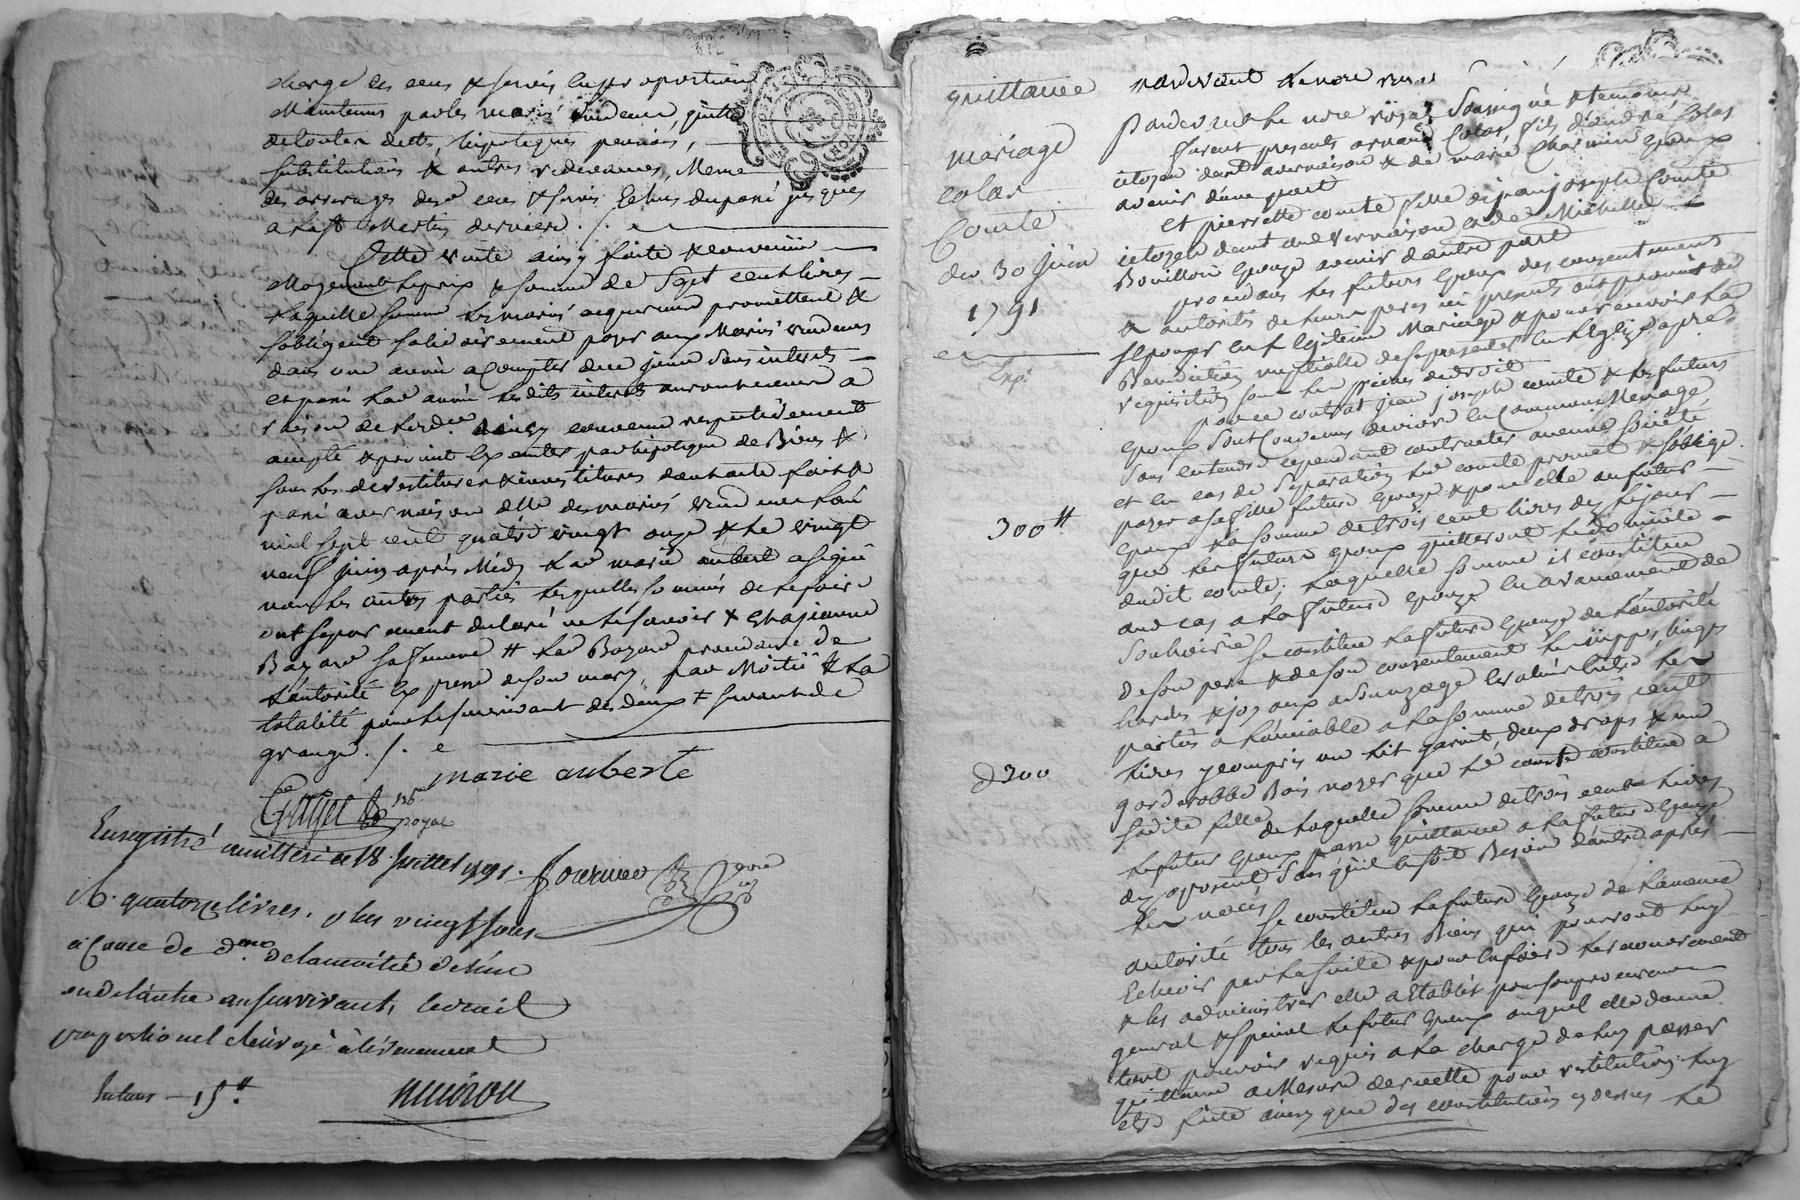 charge des cens & servis en proportion
Maintenus par les mariés vendeurs, quitte
de toutes dettes, hipoteques pensions,
substitutions & autres redevances, Meme
des arrerages desd cens & servis Echus du passé jusques
a la st Martin derniere ./.
Cette vente ainsy faite & convenüe
Moyennant le prix & somme de Sept cent livres
Laquelle somme les mariés acquereurs promettent &
s'obligent solidairement payer aux Mariés vendeurs
dans une année a compter de ce jour sans interets
et passé lad année lesdits interets auront cours a
raison de l'ord.re ainsy convenu respectivement
accepté & promit Ex enter par hipoteque de Biens &
sous les devestitures & investitures dont acte fait &
passé a vernaison melle des mariés vendeurs L'an
mil sept cent quatre vingt onze & le vingt
neuf juin après Midy Lad marie aubert a signé
non les autres parties lesquelles sommés de le faire
ont separement declaré ne le savoir &
Bazard sa femme # Lad Bazard procedante de
L'autorité Ex presse de son mary, par Moitié & La
totalité pour le survivant des deux #
grange ./.
marie auberte
royal
Enregistré a millery ce 18 Juillet 1791.
R. quatorze livres. plus vingt sous
a Cause de d.on de la moitié de l'une
ou de l'autre au survivant, le droit
proportionnel
15.#
quittance
mariage
colas
Comte
du 30 juin
1791
Exp.
pardevant le no.re
Pardevant le no.re royal Soussigné & temoins
furent presents arnaud Colas, fils d'andré Colas
citoyen dud vernaison & de marie Charmin Epoux
avenir d'une part
Et pierrette comte fille de jean joseph Comte
citoyen dud vernaison & de Michelle
Bouillon Epouse avenir d'autre part
procedans les futurs Epoux des consentements
& autorités de leurs peres ici presents ont promis de
s'Epouser en Legitime Mariage & pour recevoir La
Benediction nuptialle de se presenter en L'Eglize a pre.
requisition sous les peines de droit
par ce contrat jean joseph comte & les futurs
Epoux sont Convenus de vivre en Commun Menage
sans entendre cependant contracter aucune societé
et en cas de separation led comte promet & s'oblige
payer a sa fille future Epouse & pour elle au futur
Epoux La somme de trois cent livres
300#
que les futurs Epoux quitteront le domicile
dudit comte; Laquelle somme il constitue
aud cas a La future Epouse en avancement de
Se constitue La future Epouse de L'autorité
de son pere & de son consentement Les nippes, linges
hardes & joyaux a son usage Evalués entre les
parties a L'amiable a La somme de trois cent
livres y compris un Lit garnit, deux draps & un
garderobbe Bois noyer que led comte constitue a
sadite fille
D300
de Laquelle somme de trois cent livres
Le futur Epoux passe quittance a La future Epouse
des apresent sans qu'il en soit Besoin d'autre apres
les noces
Se constitue La future Epouse de La meme
autorité tous les autres Biens qui pourront luy
Echeoir par La suite & pour en faire Le recouvrement
& les administrer elle a Etabli pour son procureur
general & special Le futur Epoux auquel elle donne
tout pouvoir requis a La charge de luy passer
quittance a Mesure de recette pour restitution luy
etre faite ainsy que des constitutions cy dessus Le